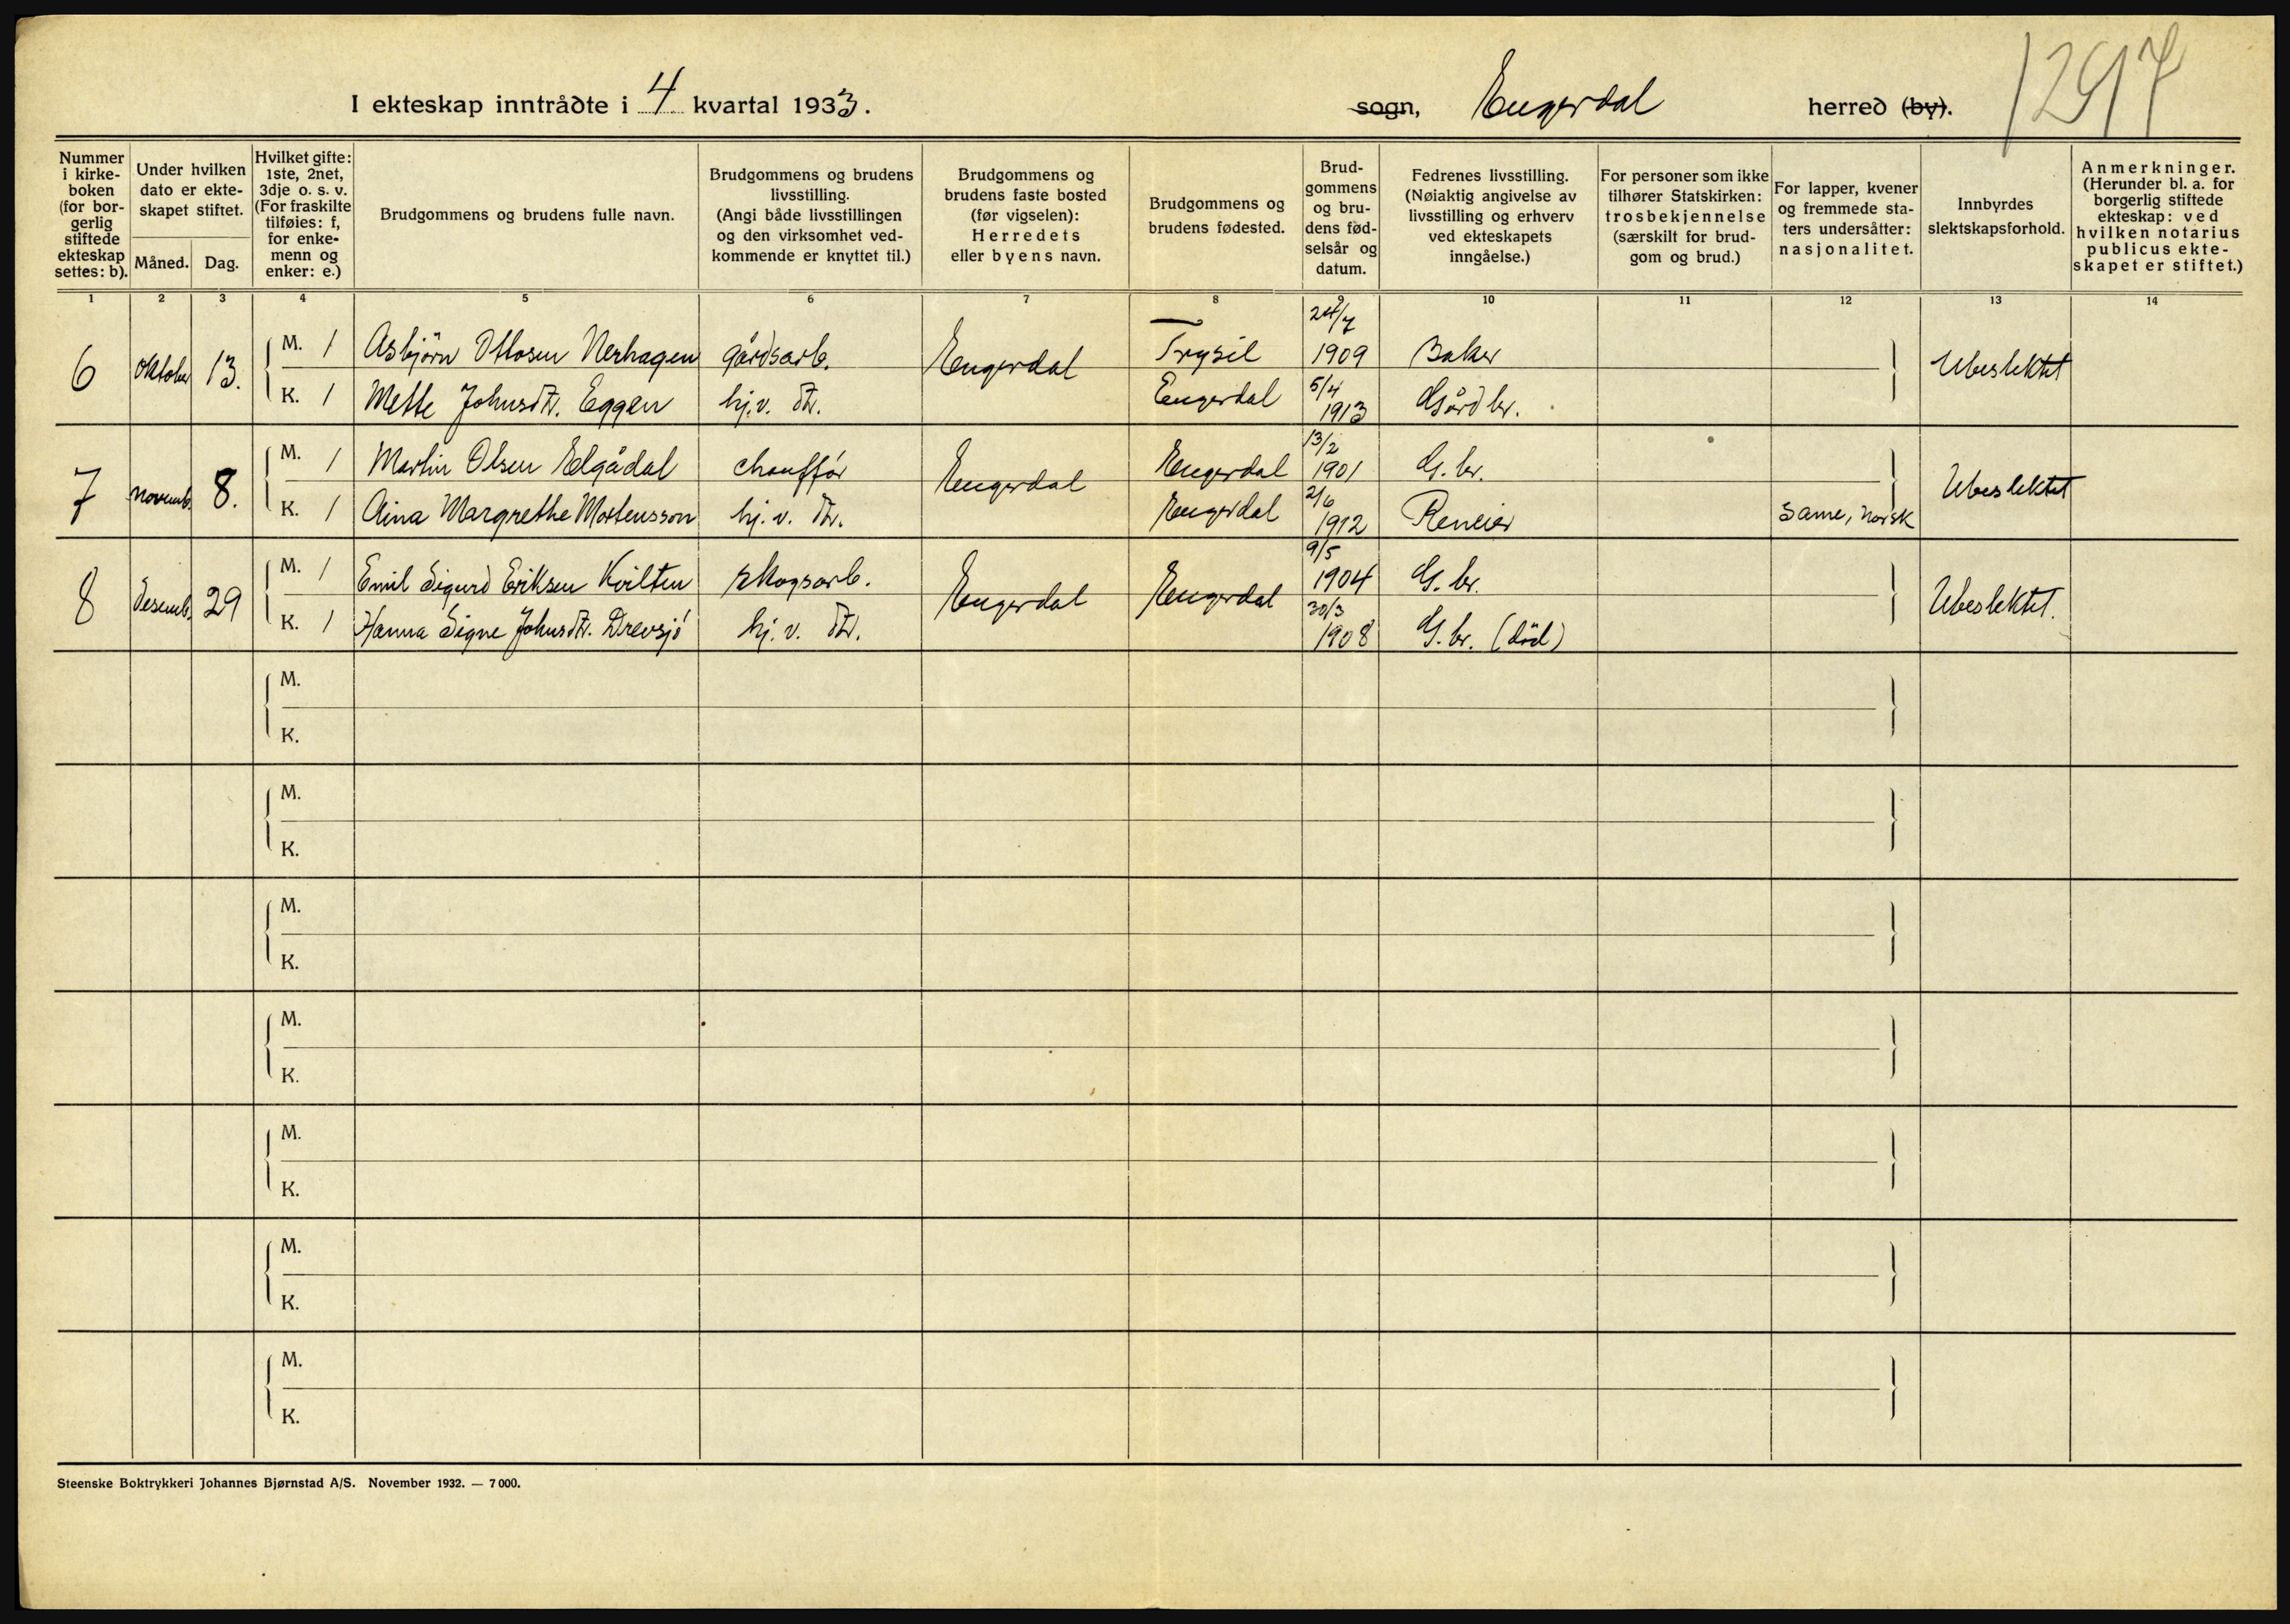 1297
I ekteskap inntrådte i 4 kvartal 1933. sogn, Engerdal herred (by).
Nummer i kirke- boken (for bor- gerlig stiftede ekteskap settes: b).
Under hvilken dato er ekte- skapet stiftet.
Måned. Dag.
Hvilket gifte: 1ste, 2net, 3dje o. s. v. (For fraskilte tilføies: f, for enke- menn og enker: e.)
Brudgommens og brudens fulle navn.
Brudgommens og brudens livsstilling. (Angi både livsstillingen og den virksomhet ved- kommende er knyttet til.)
Brudgommens og brudens faste bosted (før vigselen): Herredets eller byens navn.
Brudgommens og brudens fødested.
Brud- gommens og bru- dens fød- selsår og datum.
Fedrenes livsstilling. (Nøiaktig angivelse av livsstilling og erhverv ved ekteskapets inngåelse.)
For personer som ikke tilhører Statskirken: trosbekjennelse (særskilt for brud- gom og brud.)
For lapper, kvener og fremmede sta- ters undersåtter: nasjonalitet.
Innbyrdes slektskapsforhold.
Anmerkninger. (Herunder bl. a. for borgerlig stiftede ekteskap: ved hvilken notarius publicus ekte- skapet er stiftet.)
1 2 3 4 5 6 7 8 9 10 11 12 13 14
6 Oktober 13. M. 1 Asbjörn Ottosen Nerhagen gårdsarb. Engerdal Trysil 24/7 1909 Baker Ubeslektet
K. 1 Mette Johnsdtr. Eggen hj.v. dtr. Engerdal 5/4 1913 Gårdbr.
7 Novemb. 8. M. 1 Martin Olsen Elgådal chauffør Engerdal Engerdal 13/2 1901 G. br. Ubeslektet
K. 1 Aina Margrethe Mortensson hj. v. dtr. Engerdal 2/6 1912 Reneier Same, norsk
8 Desemb. 29 M. 1 Emil Sigurd Eriksen Kvilten skogsarb. Engerdal Engerdal 9/5 1904 G. br. Ubeslektet.
K. 1 Hanna Signe Johnsdtr. Drevsjö hj. v. dtr. 30/3 1908 G. br. (död)
M.
K.
M.
K.
M.
K.
M.
K.
M.
K.
M.
K.
M.
K.
Steenske Boktrykkeri Johannes Bjørnstad A/S. November 1932. — 7 000.